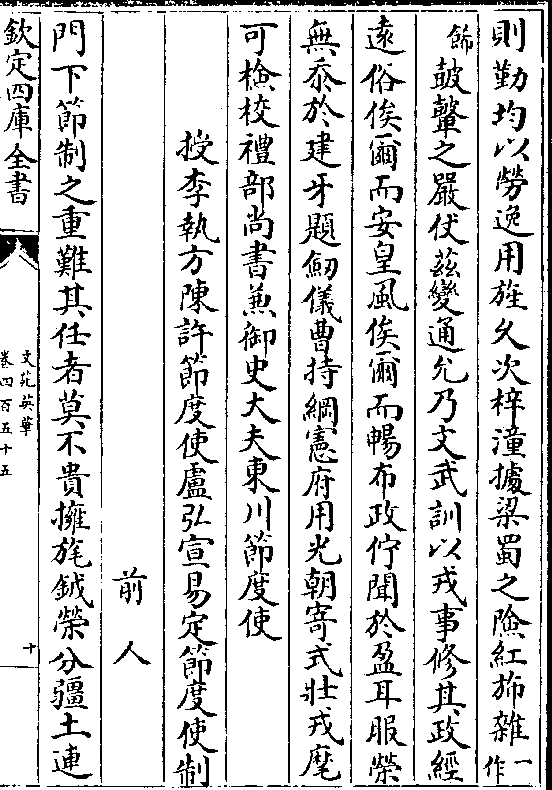 則勤均以勞逸用旌久次梓潼據梁蜀之險紅斾雜一作
飾鼓鼙之嚴伏茲變通允乃文武訓以戎事修其政經
遠俗俟爾而安皇風俟爾而暢布政佇聞於盈耳服榮
無忝於建牙題劒儀曹持綱憲府用光朝寄式壯戎麾
可檢校禮部尚書兼御史大夫東川節度使
授李執方陳許節度使盧弘宣易定節度使制
前人
門下節制之重難其任者莫不貴擁旄鉞榮分疆土連
欽定四庫全書
文苑英華
卷四百五十五
十